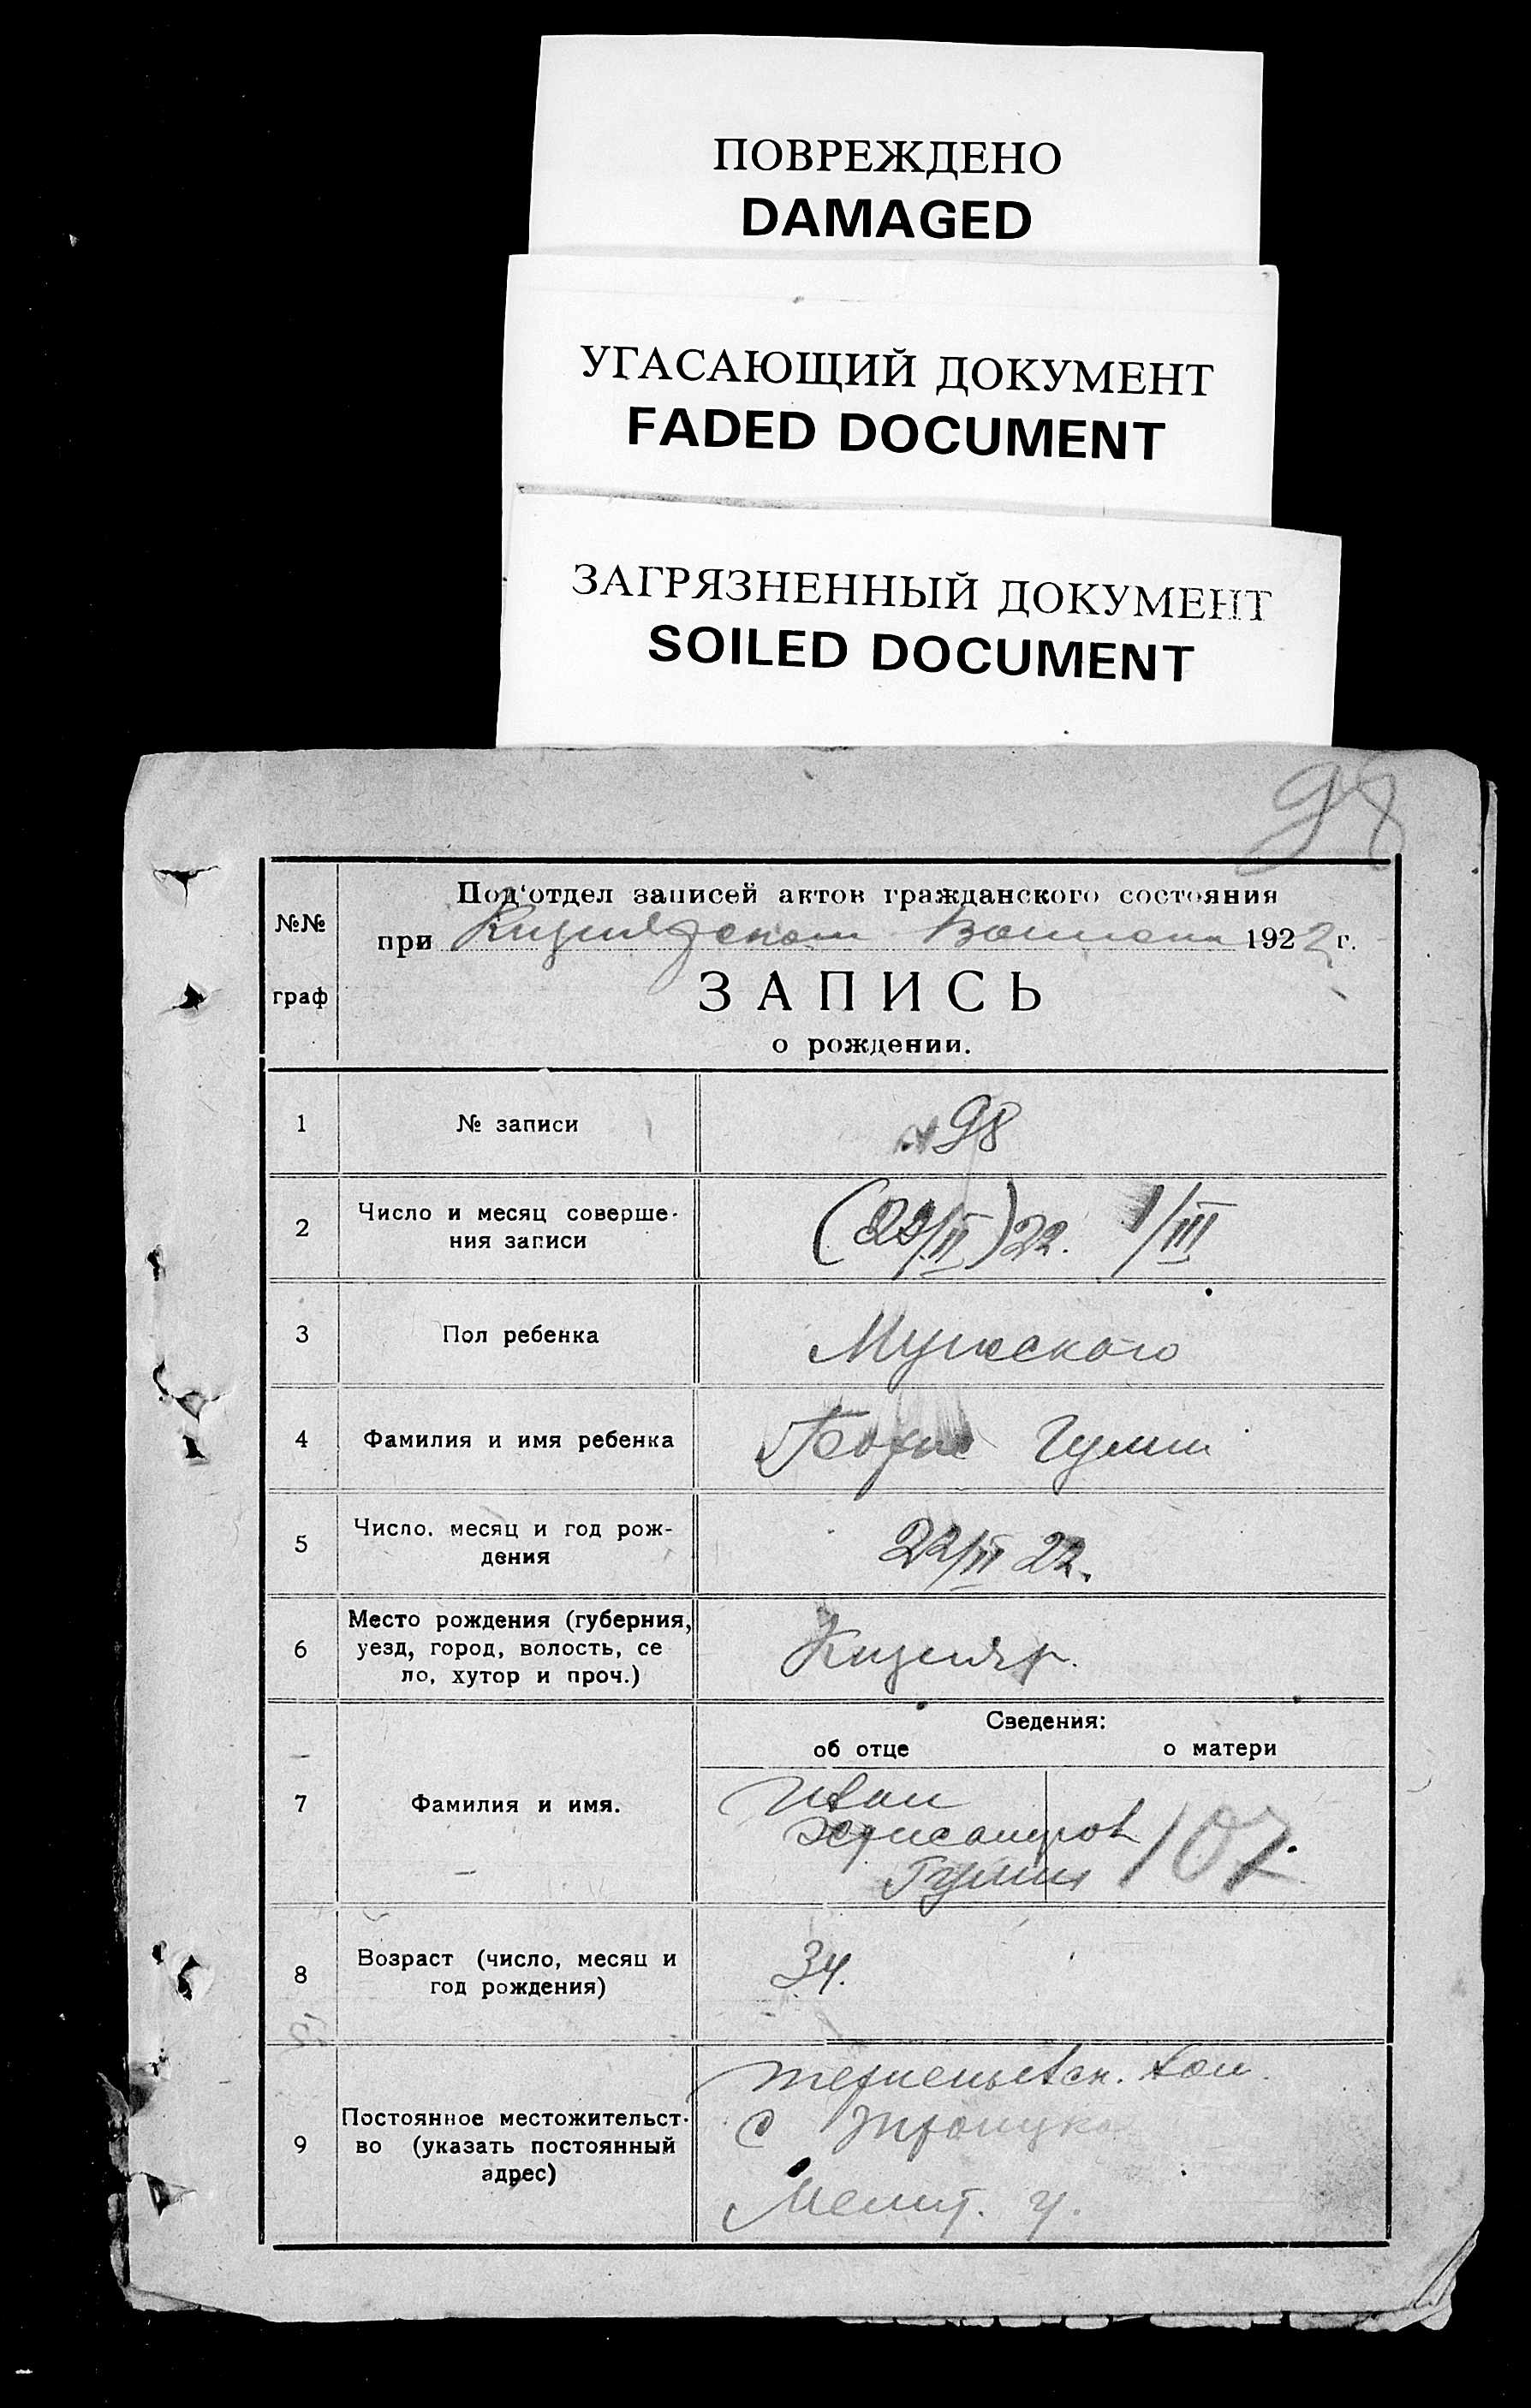 ПОВРЕЖДЕНО
DAMAGED
УГАСАЮЩИЙ ДОКУМЕНТ
FADED DOCUMENT
ЗАГРЯЗНЕННЫЙ ДОКУМЕНТ
SOILED DOCUMENT
98
№№ граф
Под'отдел записей актов гражданского состояния
при 1922 г.
ЗАПИСЬ
о рождении.
1 № записи 98
2 Число и месяц соверше-
ния записи /II) 22. 1/III
3 Пол ребенка Мужского
4 Фамилия и имя ребенка
5 Число, месяц и год рож-
дения 22/II 22.
6 Место рождения (губерния,
уезд, город, волость, се
ло, хутор и проч.) Кизияр.
Сведения:
об отце о матери
7 Фамилия и имя. Иван
107
8 Возраст (число, месяц и
год рождения) 34.
9 Постоянное местожительст-
во (указать постоянный
адрес)
с
Мелит. у.